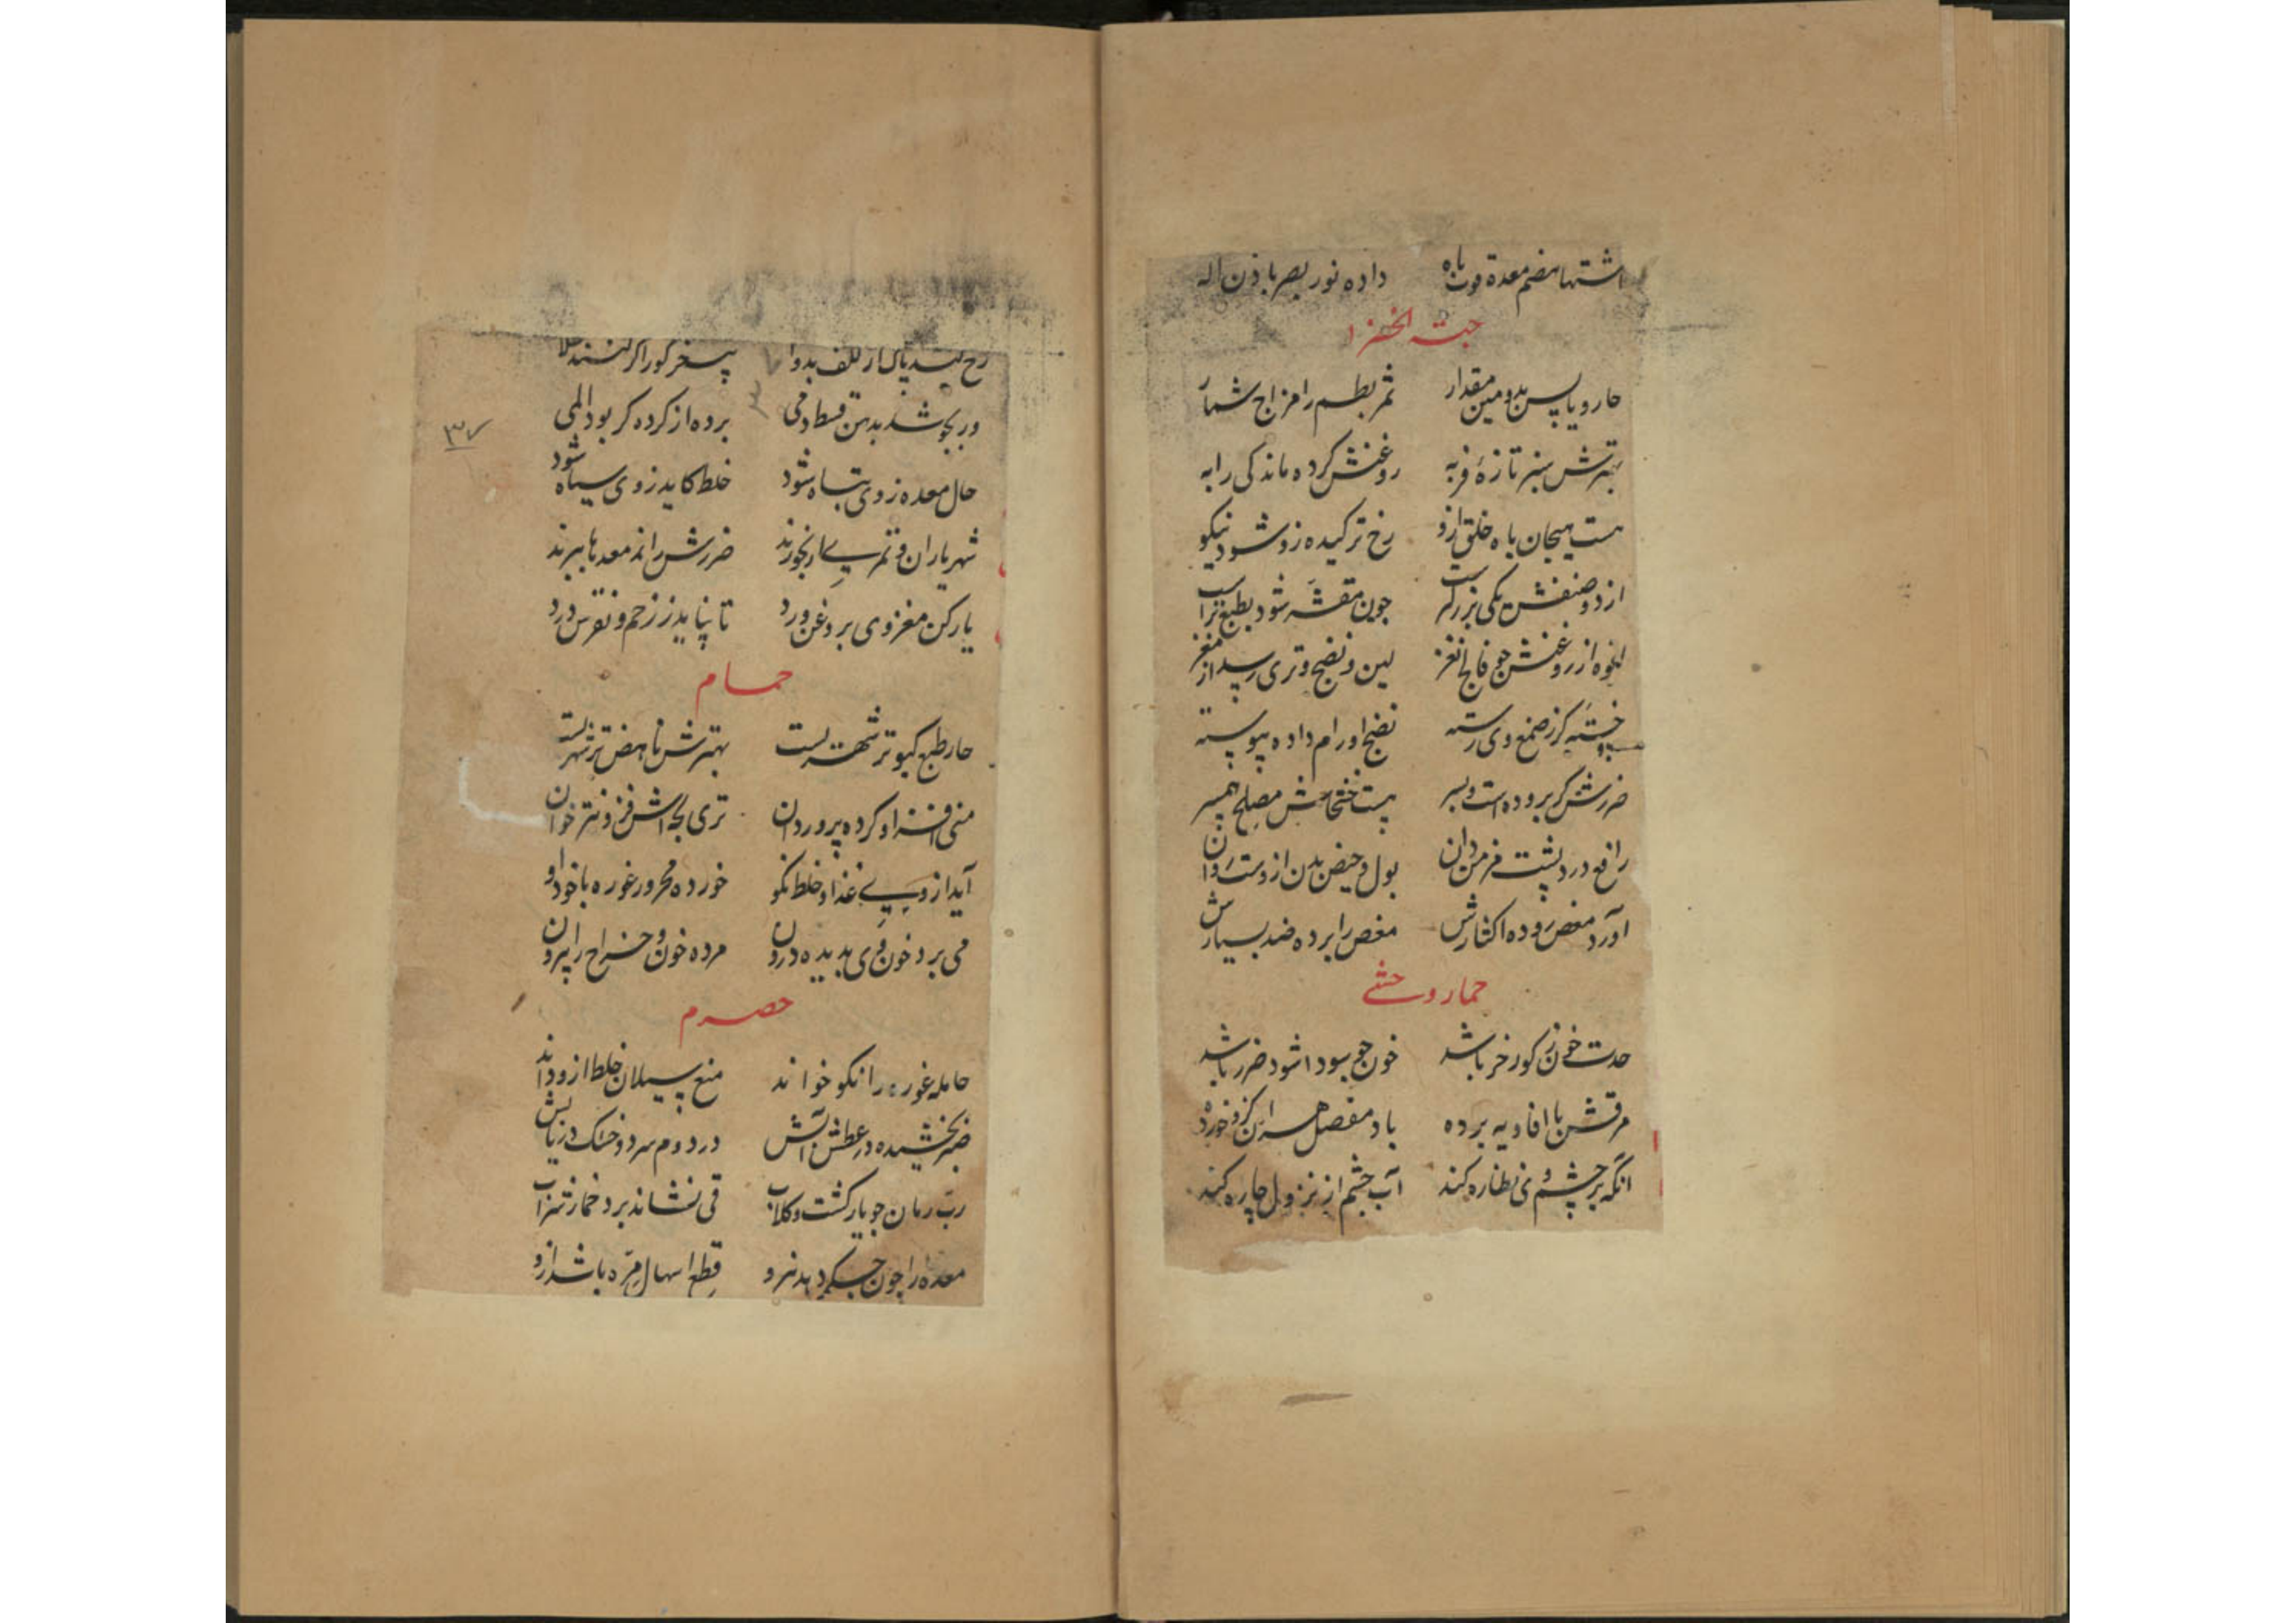 اشتها هضم معده قوت باه داده نور بصر باذن اله
حبته الخضرا
حار و یابس بدومین مقدار ثمر بطم را مزاج شمار
بهترش سبز تازهٔ فربه روغنش کرده ماندکی را به
هست هیجان باه خلق ازو رخ ترکیده زو شود نیکو
از دو صنفش یکی بزرگ چون مقشر شود بطبع
از روغنش چو فالج نغز لین و نضج و تری رسد از مغز
کز صمغ وی رسته نضج اورام داده پیوسته
ضررش گر بروده است و بسر هست خشخاش مصلح همسر
رافع درد پشت مزمن دان بول و حیض بدن ازوست روان
آورد مغص روده اکثارش مغص را برده ضد بسیارش
حمار وحشی
حدت خون ز گورخر باشد خون چو سودا شود ضرر باشد
مرقش با افاویه برده باد مفصل هر آن کزو خورده
آنکه بر چشم وی نظاره کند آب چشم از نزول چاره کند
رخ کند پاک از کلف بدوا پیه خر گور اگر کنند طلا
ور بجوشد بدهن قسط دمی برده از کرده گر بود المی
حال معده ز وی تباه شود خلط کاید ز وی سیاه شود
شهریاران و تمر پی ار نخورند ضررش را ز معدها ببرند
یار کن مغز وی بروغن ورد تا نیاید ز زحم و نقرس درد
حمام
حار طبع کبوتر شهریست بهترش ناهض تر شهریست
منی افزا و کرده پرور دان تری بچه‌اش فزونتر خوان
آید از وی پی غذا و خلط نکو خورده محرور غوره با خود او
می برد خون وی بدیده درون مرده خون و خراج را بیرون
حصرم
حامله غوره را نکو خواند منع سیلان خلط ازو داند
بخشیده در عطش آبش در دوم سرد و خشک دریابش
رب رمان چو یار گشت و گلاب قی نشاند برد خمار شراب
معده را چون جگر دهد نیرو قطع اسهال مره باشد ازو
۳۷